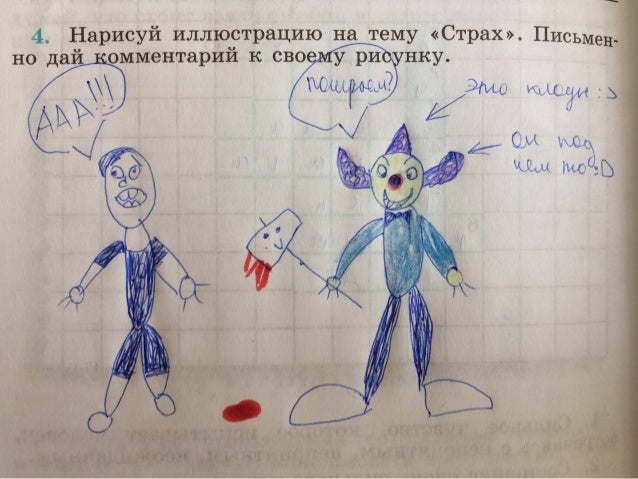 4. Нарисуй иллюстрацию на тему «Страх». Письмен-
но дай комментарий к своему рисунку.
ААА!!!
поиграем?
это клоун :э
он под
чем то :D